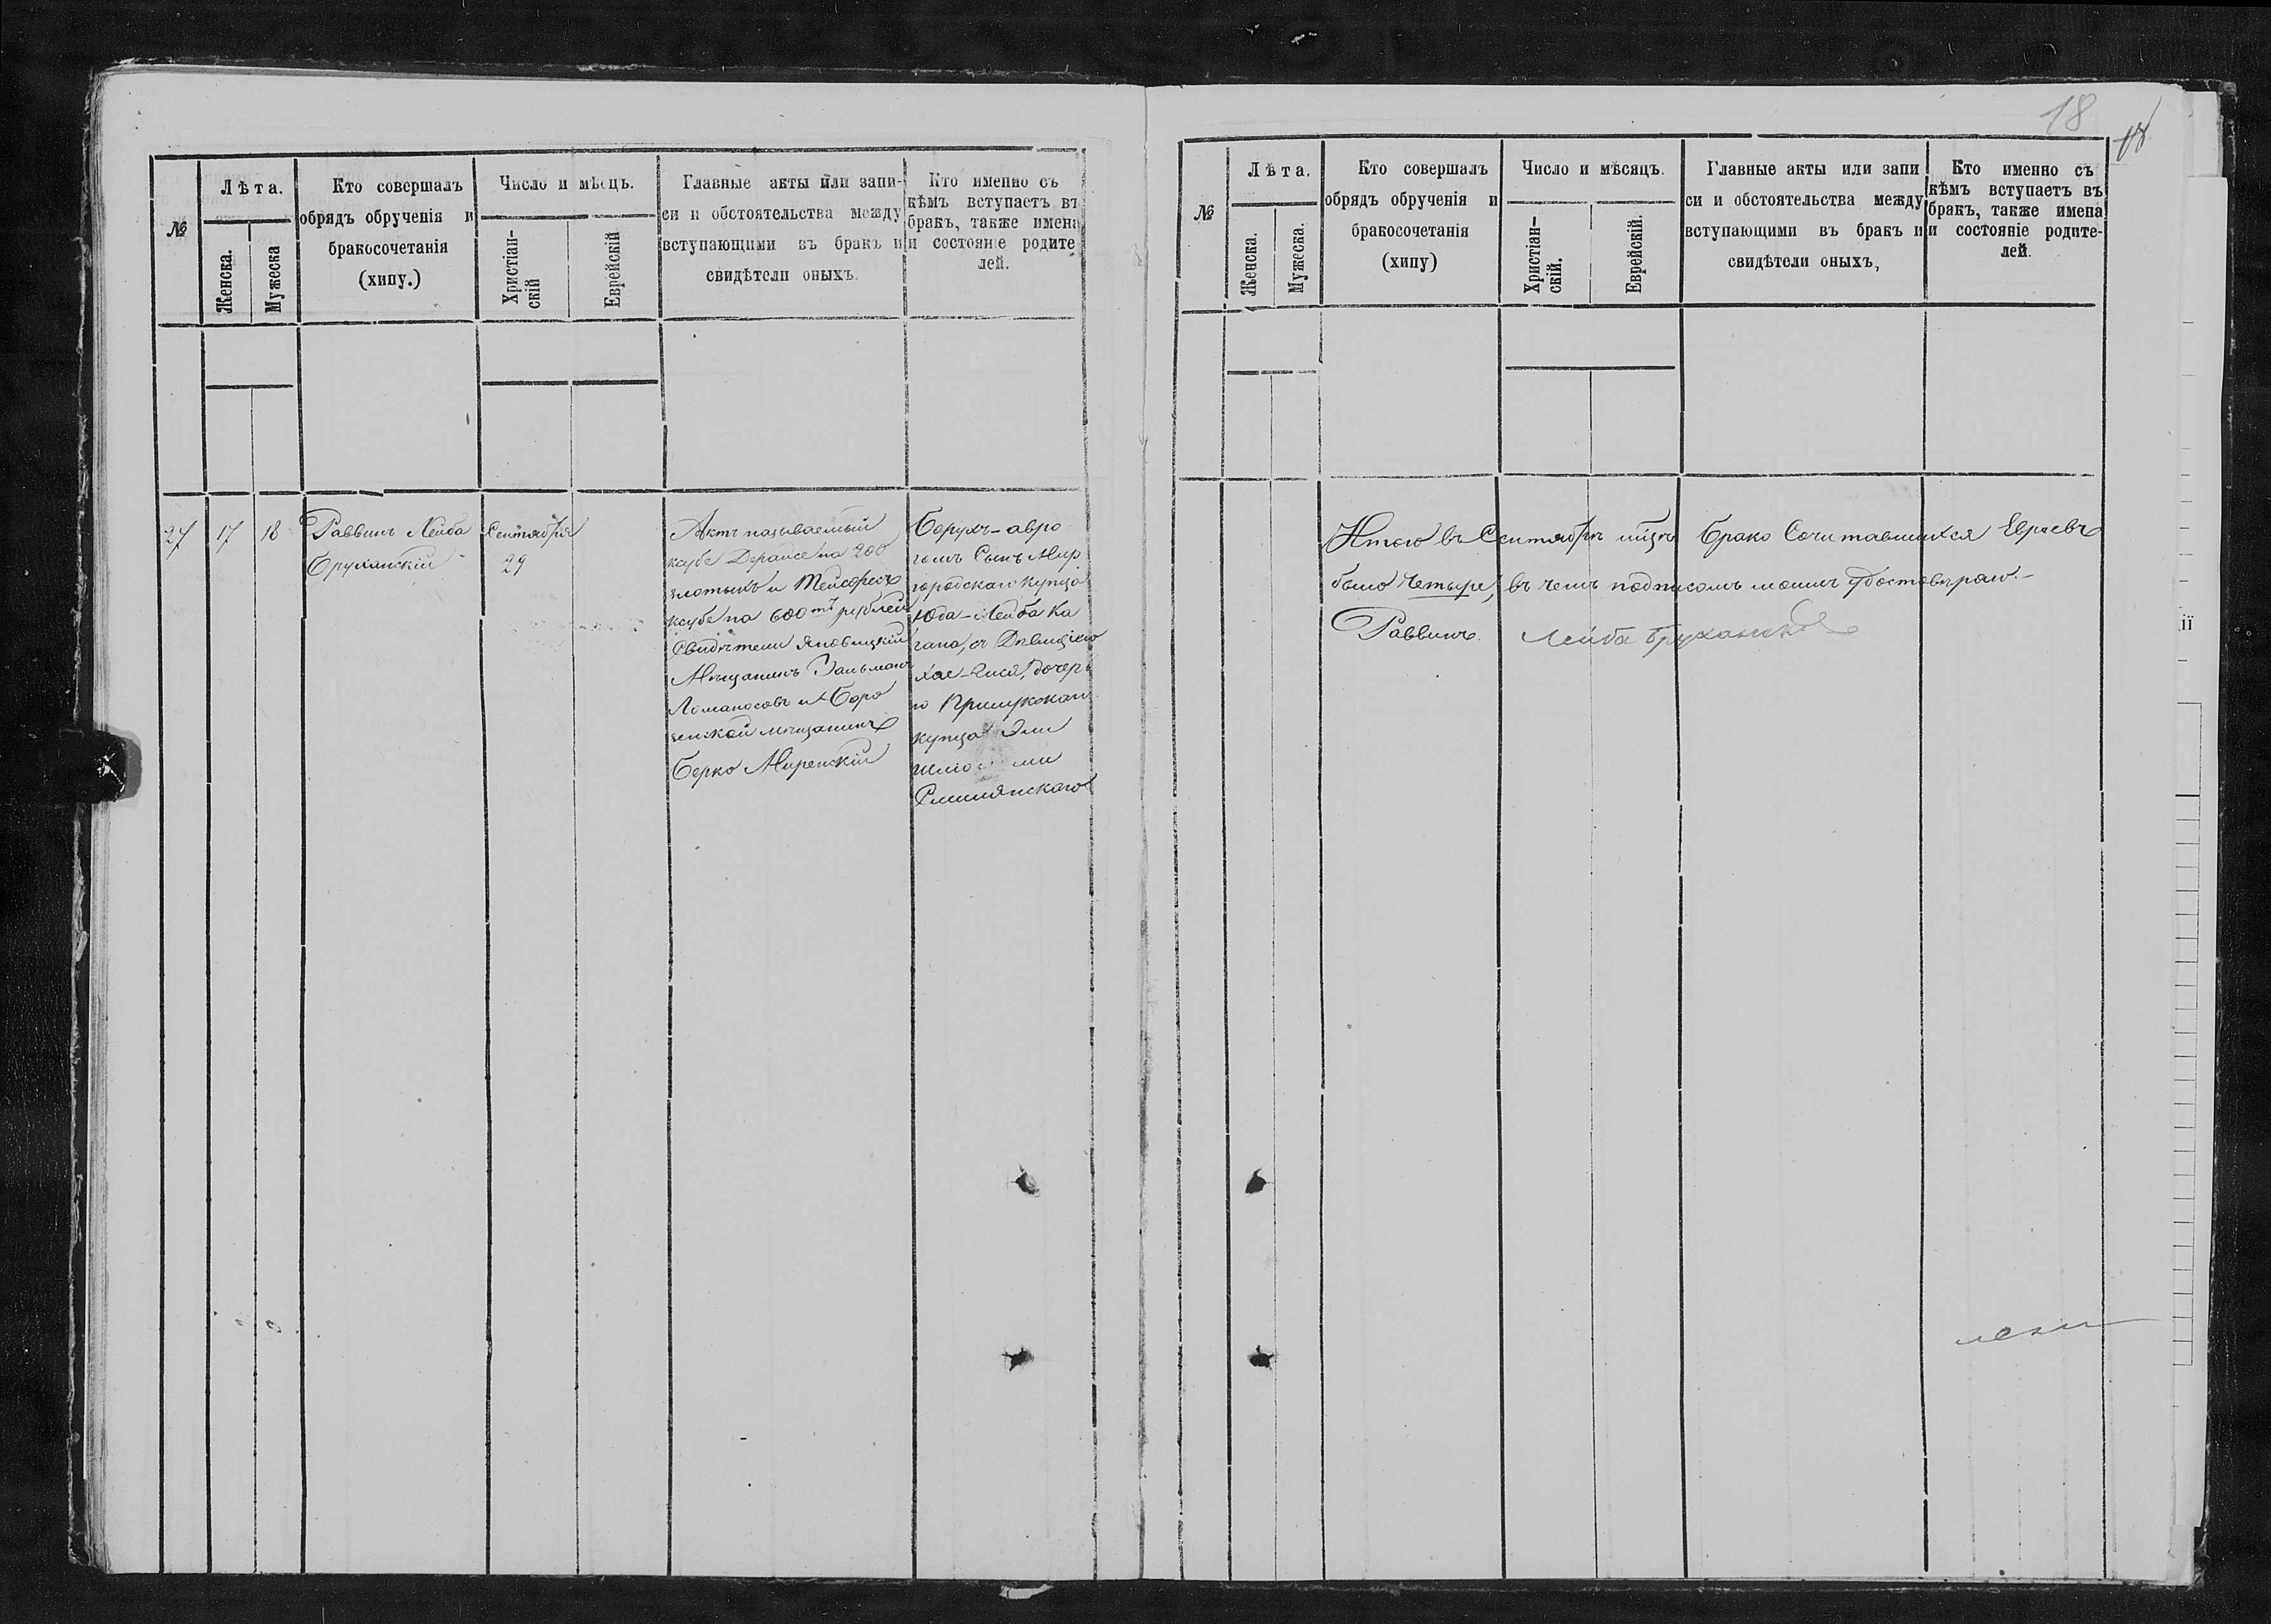 18
№
Лѣта.
Женска.
Мужеска
Кто совершалъ
обрядъ обрученія и
бракосочетанія
(хипу.)
Число и мѣсцъ.
Христіан-
скій
Еврейскій
Главные акты или запи-
си и обстоятельства между
вступающими въ бракъ и
свидѣтели оныхъ.
Кто именно съ
кѣмъ вступаетъ въ
бракъ, также имена
и состояніе родите
лей.
27
17
18
Раввинъ Лейба
Бруханскій
Сентября
29
Актъ называемый
ксубе Дерайсе на 200
злотыхъ и Тейсефесъ
ксубе на 600тъ рублей
Свидѣтели Яновицкій
Мѣщанинъ Зальманъ
Ломаносовъ и Боро
зенской мѣщанинъ
Берко Миренскій
Берухъ-авро
гомъ Сынъ Мир
городскаго купца
Юда-Лейба Ка
гана, съ Дѣвицею
Хае- дочерь
ю Прилукскаго
купца Эли
№
Лѣта.
Женска.
Мужеска.
Кто совершалъ
обрядъ обрученія и
бракосочетанія
(хипу)
Число и мѣсяцъ.
Христіан-
скій.
Еврейскій.
Главные акты или запи
си и обстоятельства между
вступающими въ бракъ и
свидѣтели оныхъ,
Кто именно съ
кѣмъ вступаетъ въ
бракъ, также имена
и состояніе родите-
лей.
Итого въ Сентябрѣ мѣцѣ брако Сочитавшихся Евреевъ
было Четыре, въ чемъ подписомъ моимъ удостовѣряю.-
Раввинъ. Лейба Бруханскій